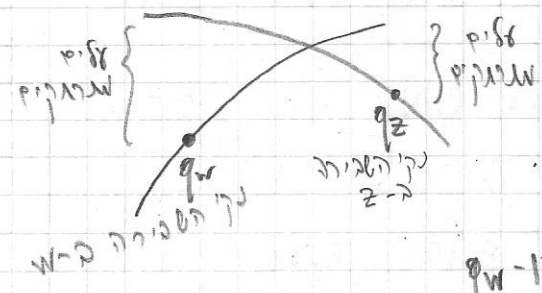 עלים
מתרחקים
עלים
מתרחקים
q_w
נק' השבירה
ב-w
q_z
נק' השבירה
ב-z
q_w -ו